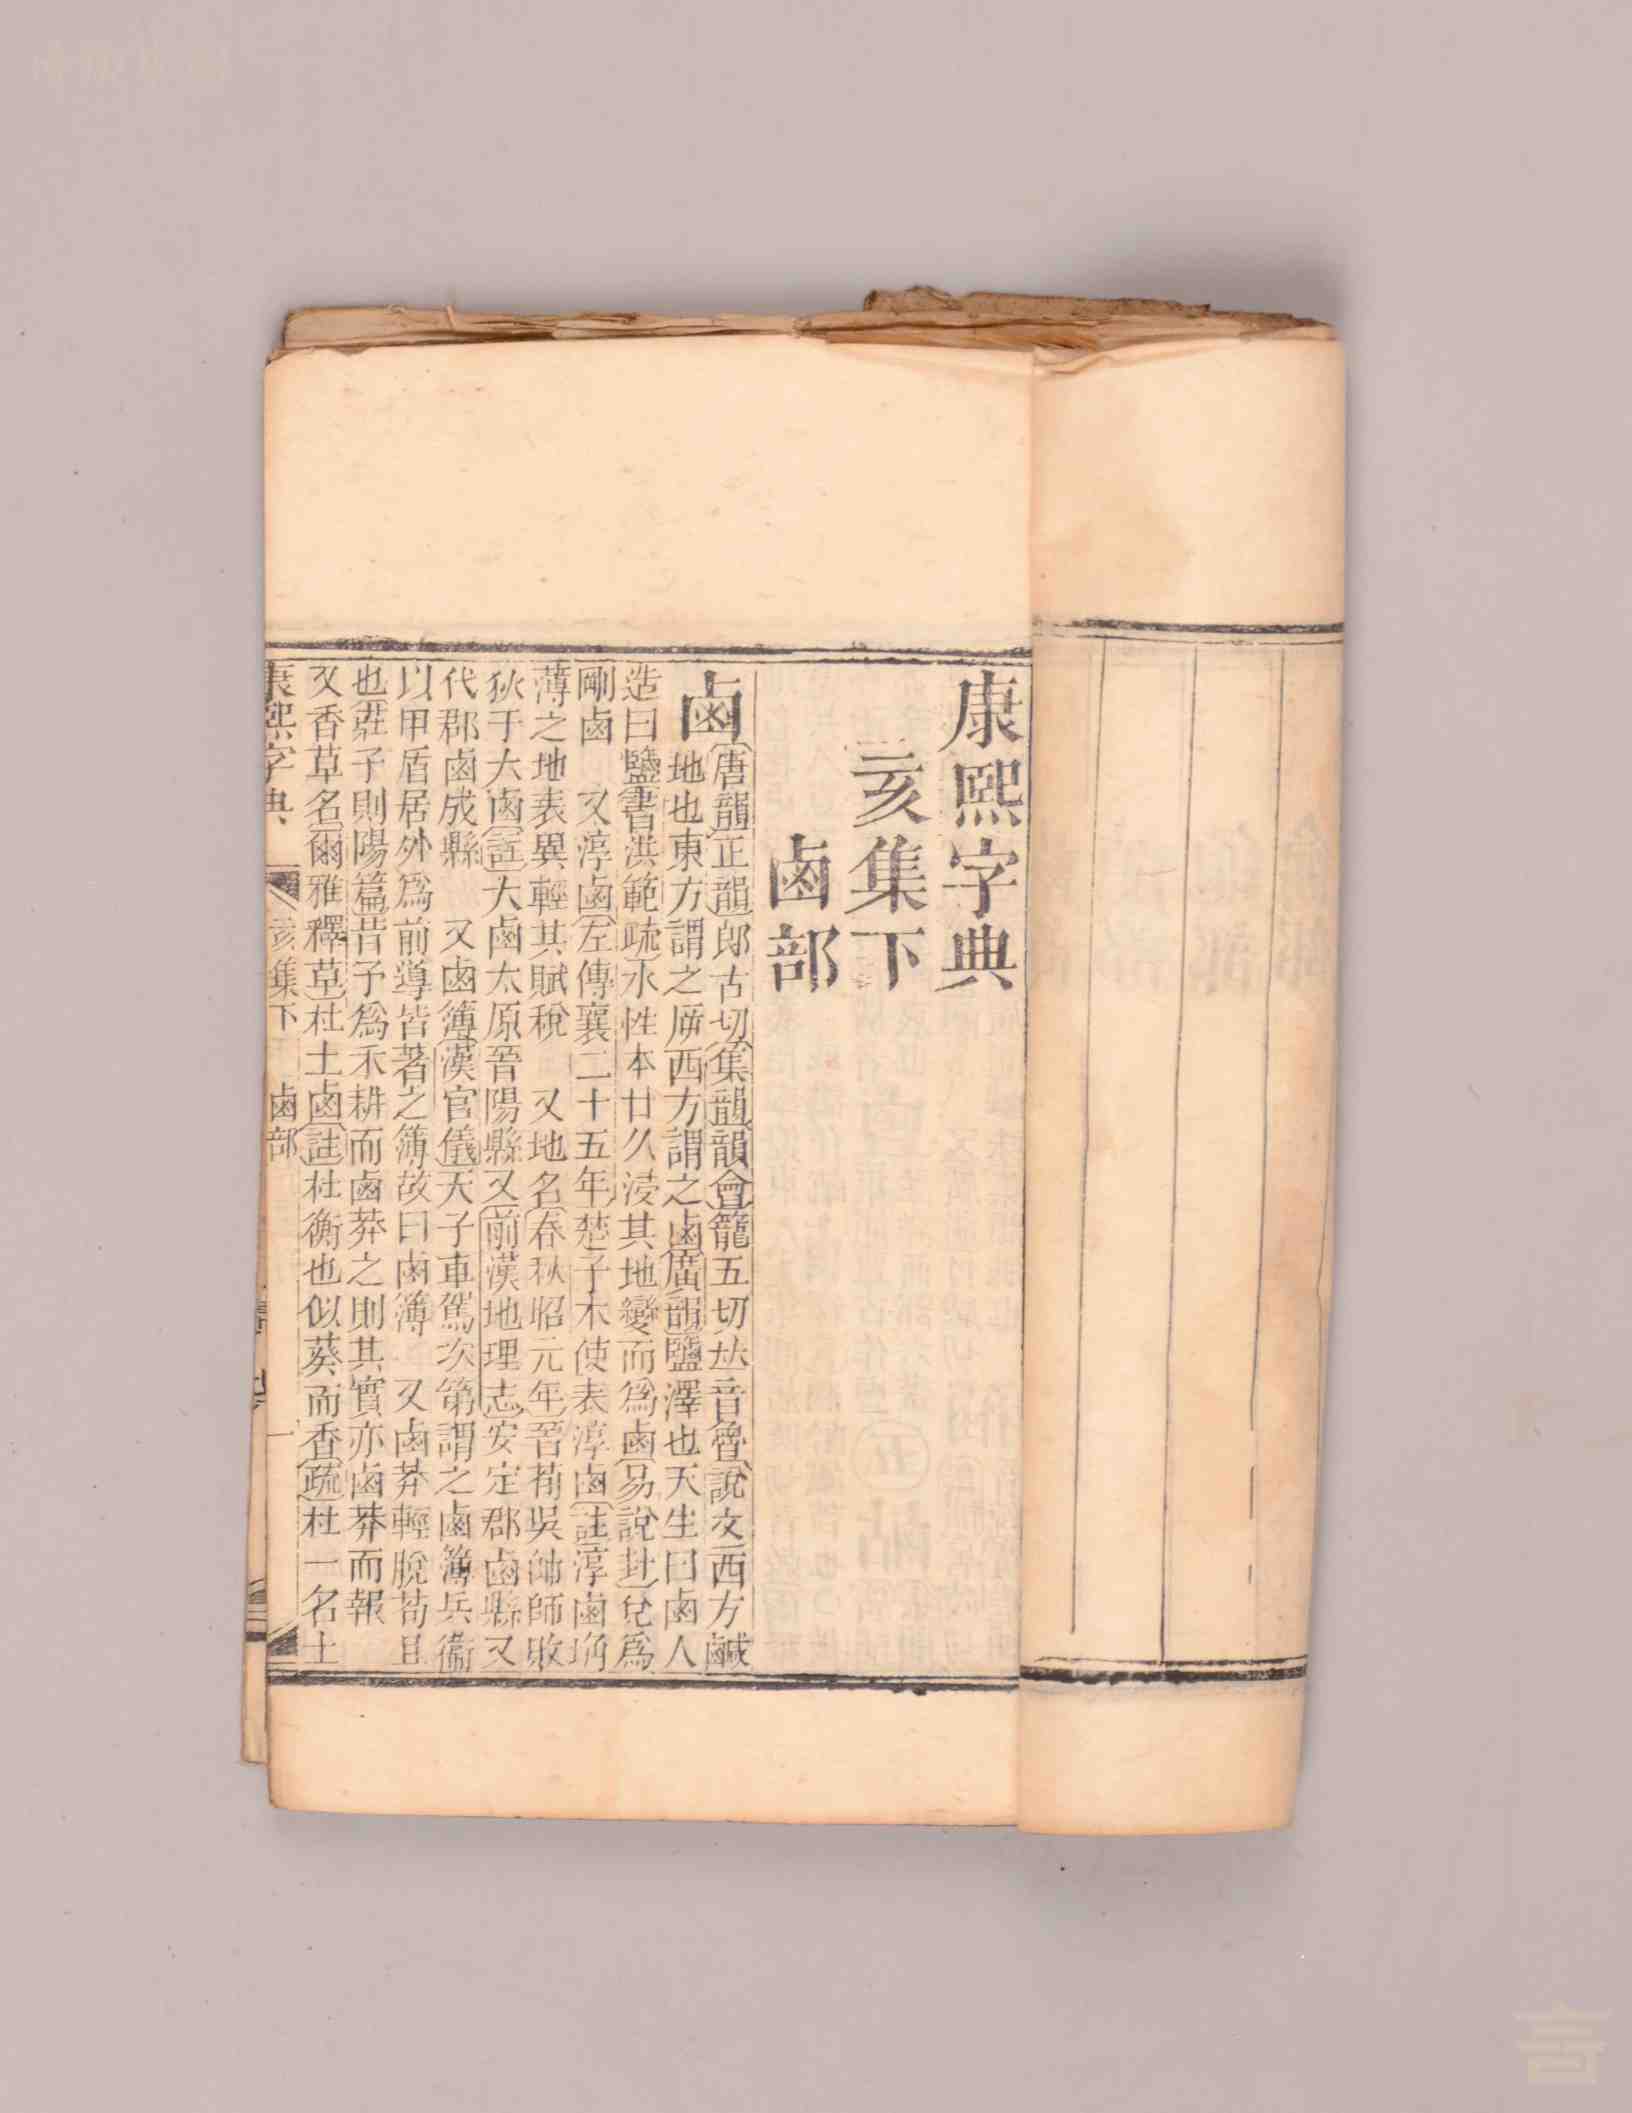 康熙字典
亥集下
鹵部
鹵
唐韻正韻郎古切集韻韻會籠五切𠀤音魯說文西方鹹
地也東方謂之㡿西方謂之鹵廣韻鹽澤也天生曰鹵人
造曰鹽書洪範疏水性本甘久浸其地變而爲鹵易說卦兌爲
剛鹵　又淳鹵左傳襄二十五年楚子木使表淳鹵註淳鹵埆
薄之地表異輕其賦稅　又地名春秋昭元年晉荀吳帥師敗
狄于大鹵註大鹵太原晉陽縣又前漢地理志安定郡鹵縣又
代郡鹵成縣　又鹵簿漢官儀天子車駕次第謂之鹵簿兵衞
以甲盾居外爲前導皆著之簿故曰鹵簿　又鹵莽輕脫苟且
也莊子則陽篇昔予爲禾耕而鹵莽之則其實亦鹵莽而報
又香草名爾雅釋草杜土鹵註杜衡也似葵而香疏杜一名土
康熙字典
亥集下
鹵部
一